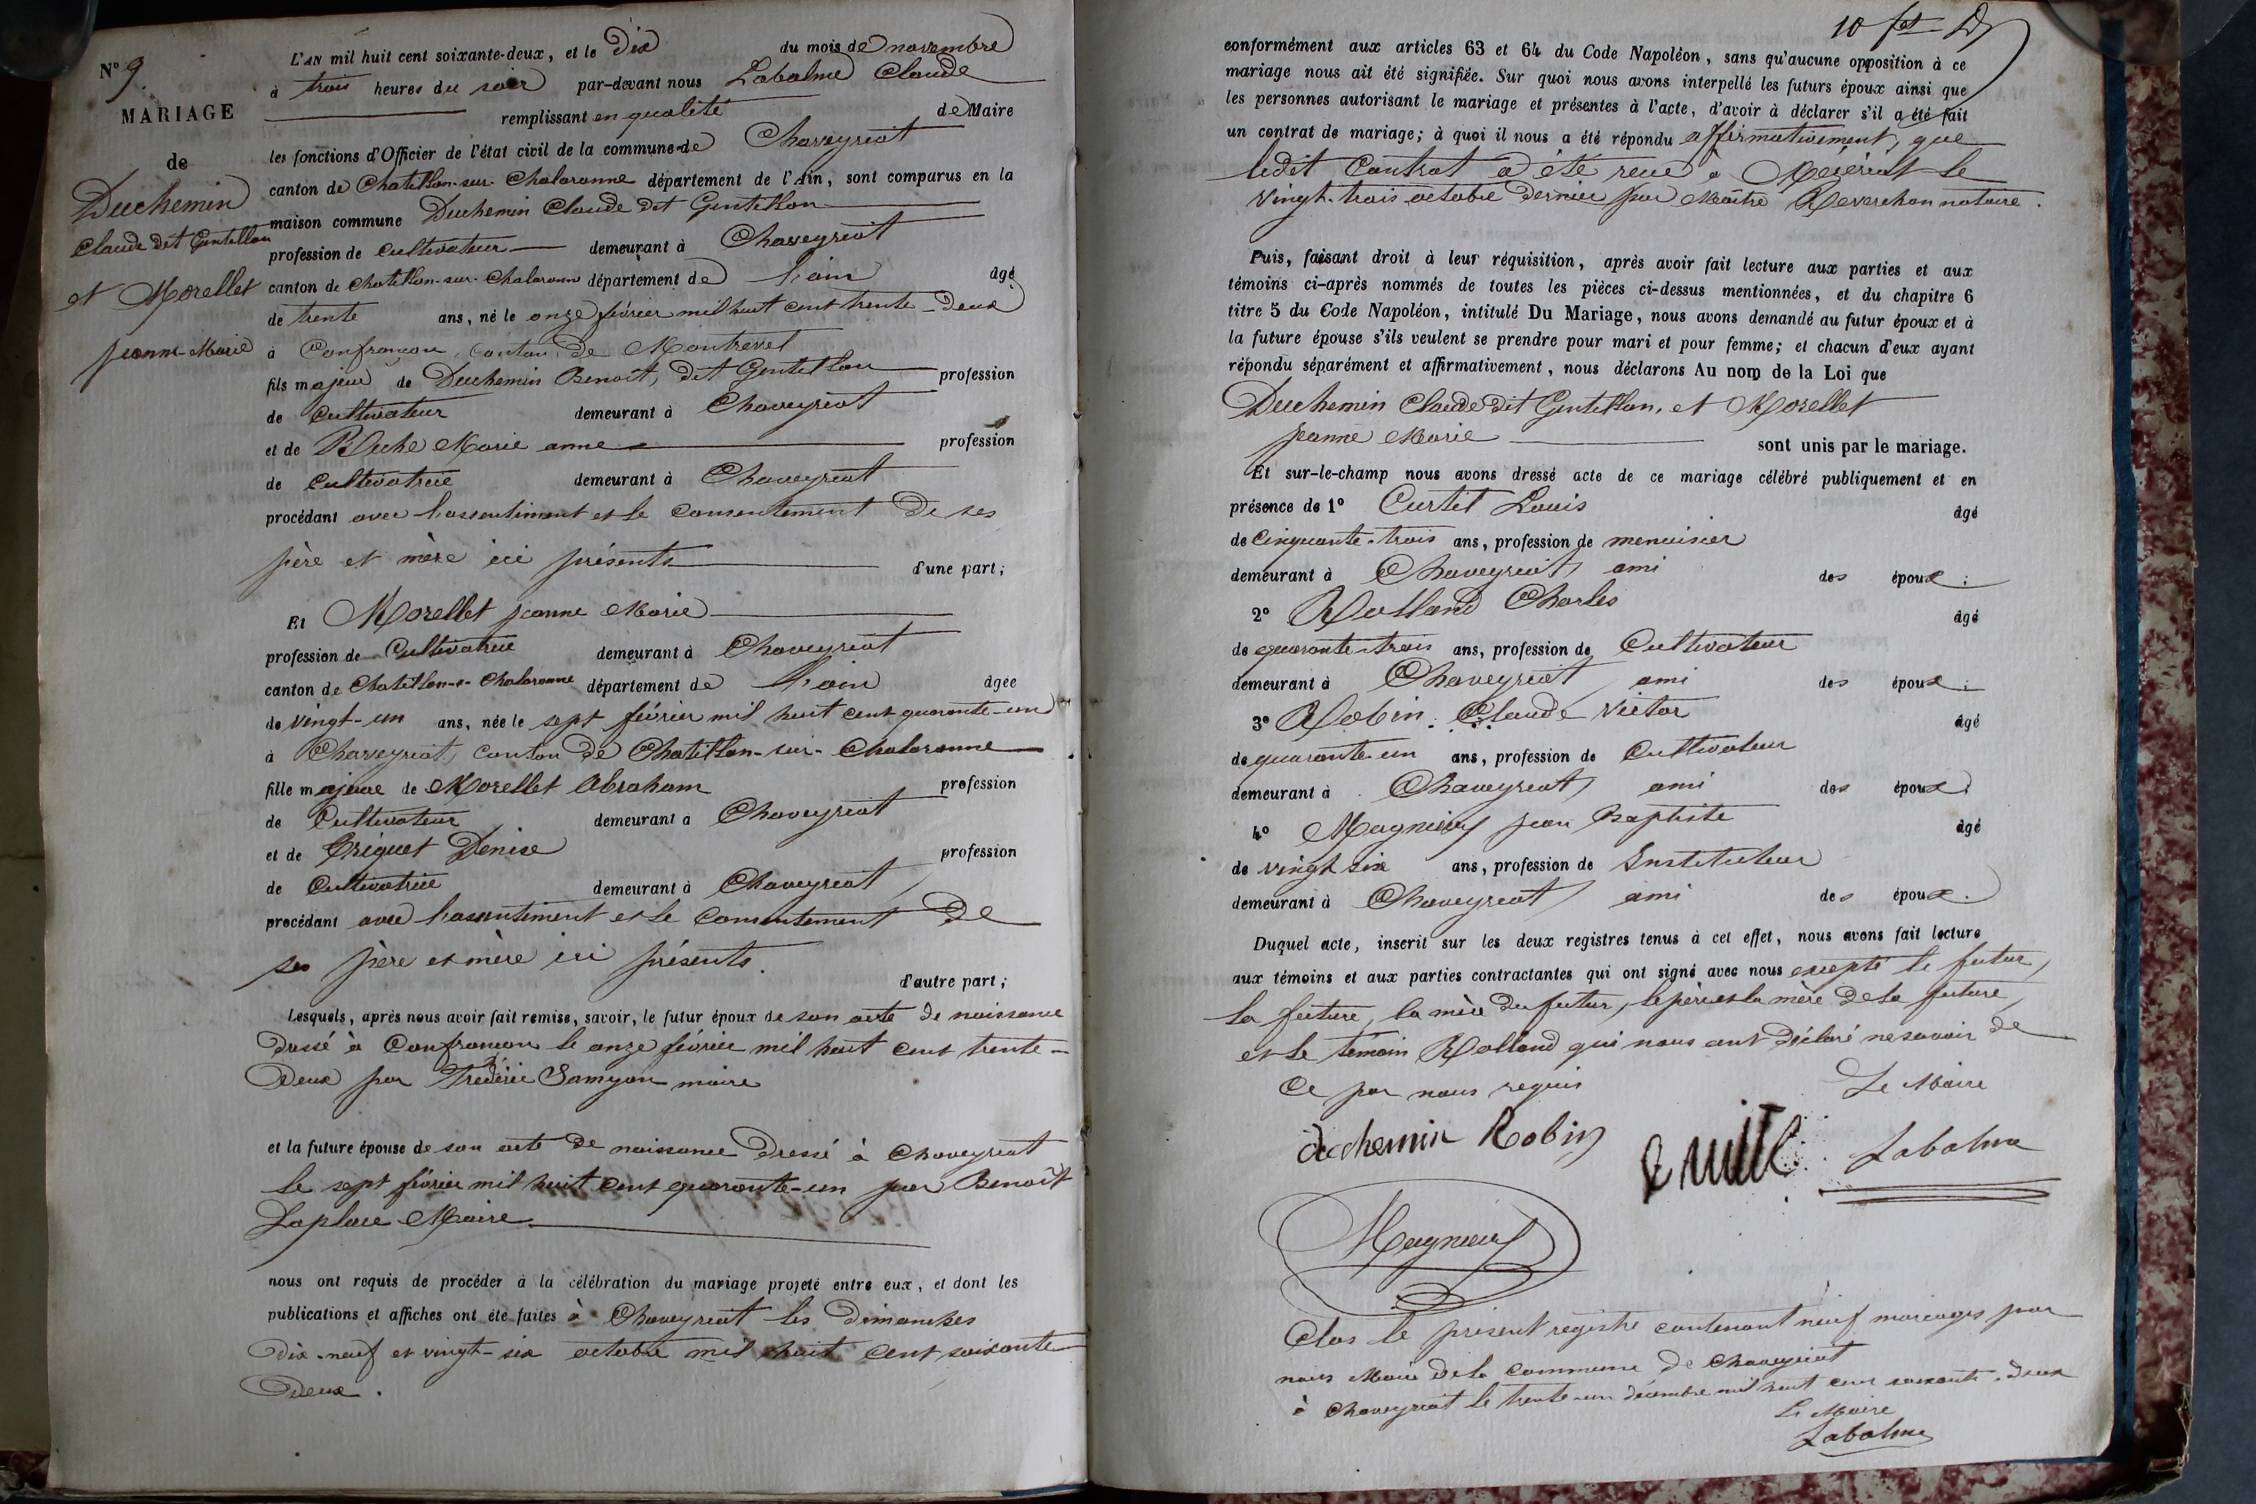 N° 9.
MARIAGE
de
Duchemin
Claude dit Gentillon
et Morellet
Jeanne-Marie
L'AN mil huit cent soixante-deux, et le dix du mois de novembre
à trois heures du soir par-devant nous Labalme Claude
remplissant en qualité de Maire
les fonctions d'Officier de l'état civil de la commune de Chaveyriat
canton de Chatillon-sur-Chalaronne département de l'Ain, sont comparus en la
maison commune Duchemin Claude dit Gentillon
profession de cultivateur demeurant à Chaveyriat
canton de Chatillon-sur-Chalaronne département de l'ain âgé
de trente ans, né le onze février mil huit cent trente-deux
à Confrançon, canton de Montrevel
fils majeur de Duchemin Benoit, dit Gentillon profession
de Cultivateur demeurant à Chaveyriat
et de Buche Marie anne profession
de Cultivatrice demeurant à Chaveyriat
procédant avec l'assentiment et le consentement de ses
père et mère ici présents d'une part;
Et Morellet Jeanne Marie
profession de Cultivatrice demeurant à Chaveyriat
canton de Chatillon-s-Chalaronne département de l'ain âgée
de vingt-un ans, née le sept février mil huit cent quarante-un
à Chaveyriat, canton de Chatillon-sur-Chalaronne
fille majeure de Morellet Abraham profession
de Cultivateur demeurant à Chaveyriat
et de Triquet Denise profession
de Cultivatrice demeurant à Chaveyriat
procédant avec l'assentiment et le consentement de
ses père et mère ici présents.
d'autre part;
Lesquels, après nous avoir fait remise, savoir, le futur époux de son acte de naissance
dressé à Confrançon le onze février mil huit cent trente-
deux par Frédéric Samyon maire
et la future épouse de son acte de naissance dressé à Chaveyriat
le sept février mil huit cent quarante-un par Benoît
Laplace Maire.
nous ont requis de procéder à la célébration du mariage projeté entre eux, et dont les
publications et affiches ont été faites à Chaveyriat les dimanches
dix-neuf et vingt-six octobre mil huit cent soixante
deux.
conformément aux articles 63 et 64 du Code Napoléon, sans qu'aucune opposition à ce
mariage nous ait été signifiée. Sur quoi nous avons interpellé les futurs époux ainsi que
les personnes autorisant le mariage et présentes à l'acte, d'avoir à déclarer s'il a été fait
un contrat de mariage; à quoi il nous a été répondu affirmativement, que
ledit contrat a été reçu à Mézériat le
vingt-trois octobre dernier par Maître Reverchon notaire.
Puis, faisant droit à leur réquisition, après avoir fait lecture aux parties et aux
témoins ci-après nommés de toutes les pièces ci-dessus mentionnées, et du chapitre 6
titre 5 du Code Napoléon, intitulé Du Mariage, nous avons demandé au futur époux et à
la future épouse s'ils veulent se prendre pour mari et pour femme; et chacun d'eux ayant
répondu séparément et affirmativement, nous déclarons Au nom de la Loi que
Duchemin Claude dit Gentillon, et Morellet
Jeanne Marie sont unis par le mariage.
Et sur-le-champ nous avons dressé acte de ce mariage célébré publiquement et en
présence de 1° Curtil Louis âgé
de cinquante-trois ans, profession de menuisier
demeurant à Chaveyriat, ami des époux;
2° Rolland Charles âgé
de quarante-trois ans, profession de Cultivateur
demeurant à Chaveyriat, ami des époux;
3° Robin Claude Victor âgé
de quarante-un ans, profession de Cultivateur
demeurant à Chaveyriat, ami des époux;
4° Magnieny Jean Baptiste âgé
de vingt six ans, profession de Instituteur
demeurant à Chaveyriat, ami des époux.
Duquel acte, inscrit sur les deux registres tenus à cet effet, nous avons fait lecture
aux témoins et aux parties contractantes qui ont signé avec nous excepté le futur,
la future, la mère du futur, le père et la mère de la future,
et le témoin Rolland qui nous ont déclaré ne savoir de
ce par nous requis
Le Maire
duchemin Robin Labalme
Magnieny
Clos le présent registre contenant neuf mariages par
nous Maire de la commune de Chaveyriat
à Chaveyriat le trente-un décembre mil huit cent soixante-deux
Le Maire
Labalme